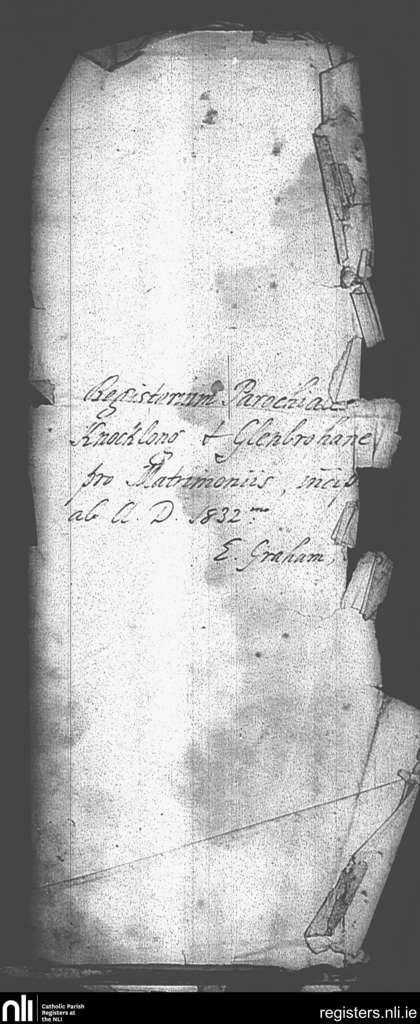 Registorum Parochiae
Knocklong & Glenbrohane
pro Matrimoniis, incip
ab A. D. 1832 mo
E. Graham,
nli
Catholic Parish
Registers at
the NLI
registers.nli.ie